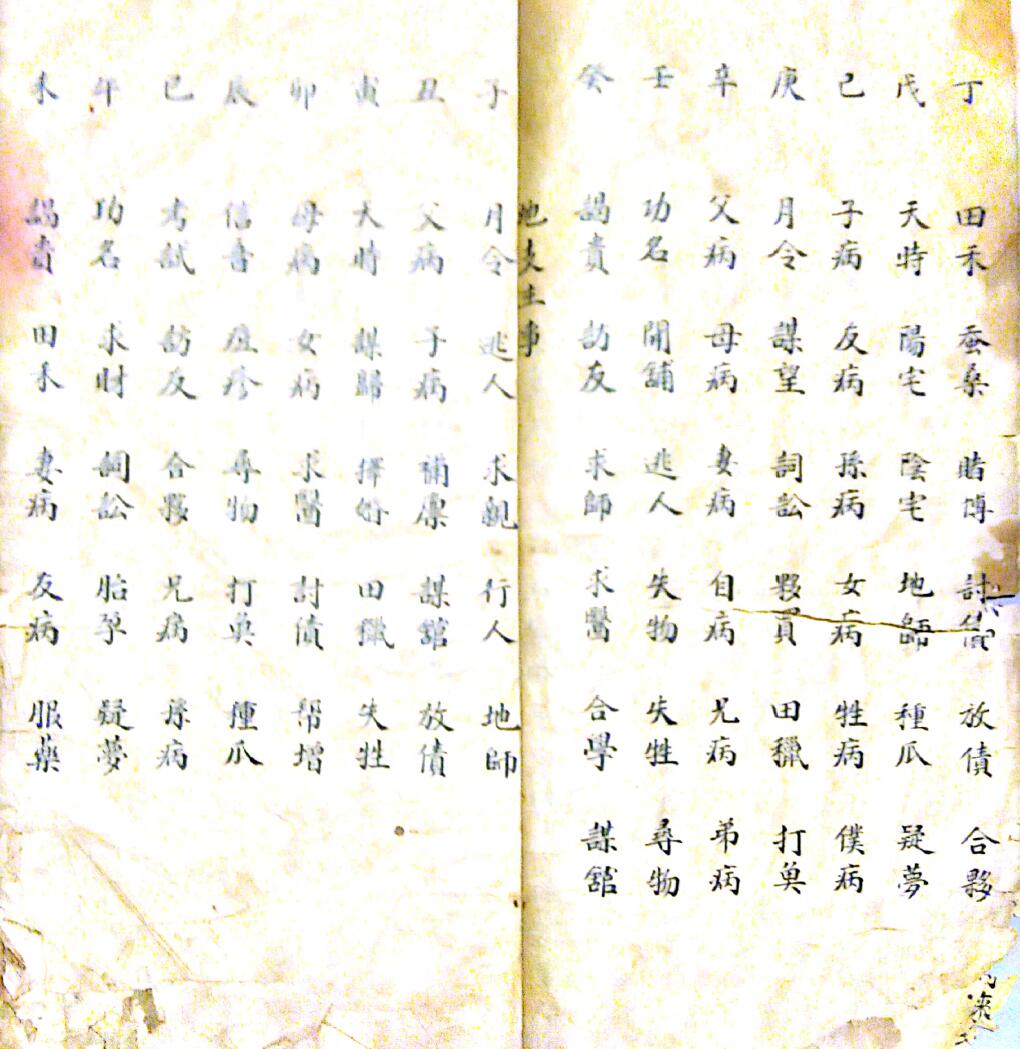 丁 田禾 蚕桑 賭博 討債 放債 合夥
戊 天時 陽宅 陰宅 地師 種瓜 疑夢
己 子病 友病 孫病 女病 牲病 僕病
庚 月令 謀望 詞訟 夥買 田獵 打魚
辛 父病 母病 妻病 自病 兄病 弟病
壬 功名 開舖 逃人 失物 失牲 尋物
癸 謁貴 訪友 求師 求醫 合學 謀舘
地支主事
子 月令 逃人 求親 行人 地師
丑 父病 子病 補廪 謀舘 放債
寅 天時 謀歸 擇婚 田獵 失牲
卯 母病 女病 求醫 討債 帮增
辰 信音 痘疹 尋物 打魚 種瓜
巳 考試 訪友 合夥 兄病 孫病
午 功名 求財 詞訟 胎孕 疑夢
未 謁貴 田禾 妻病 友病 服藥